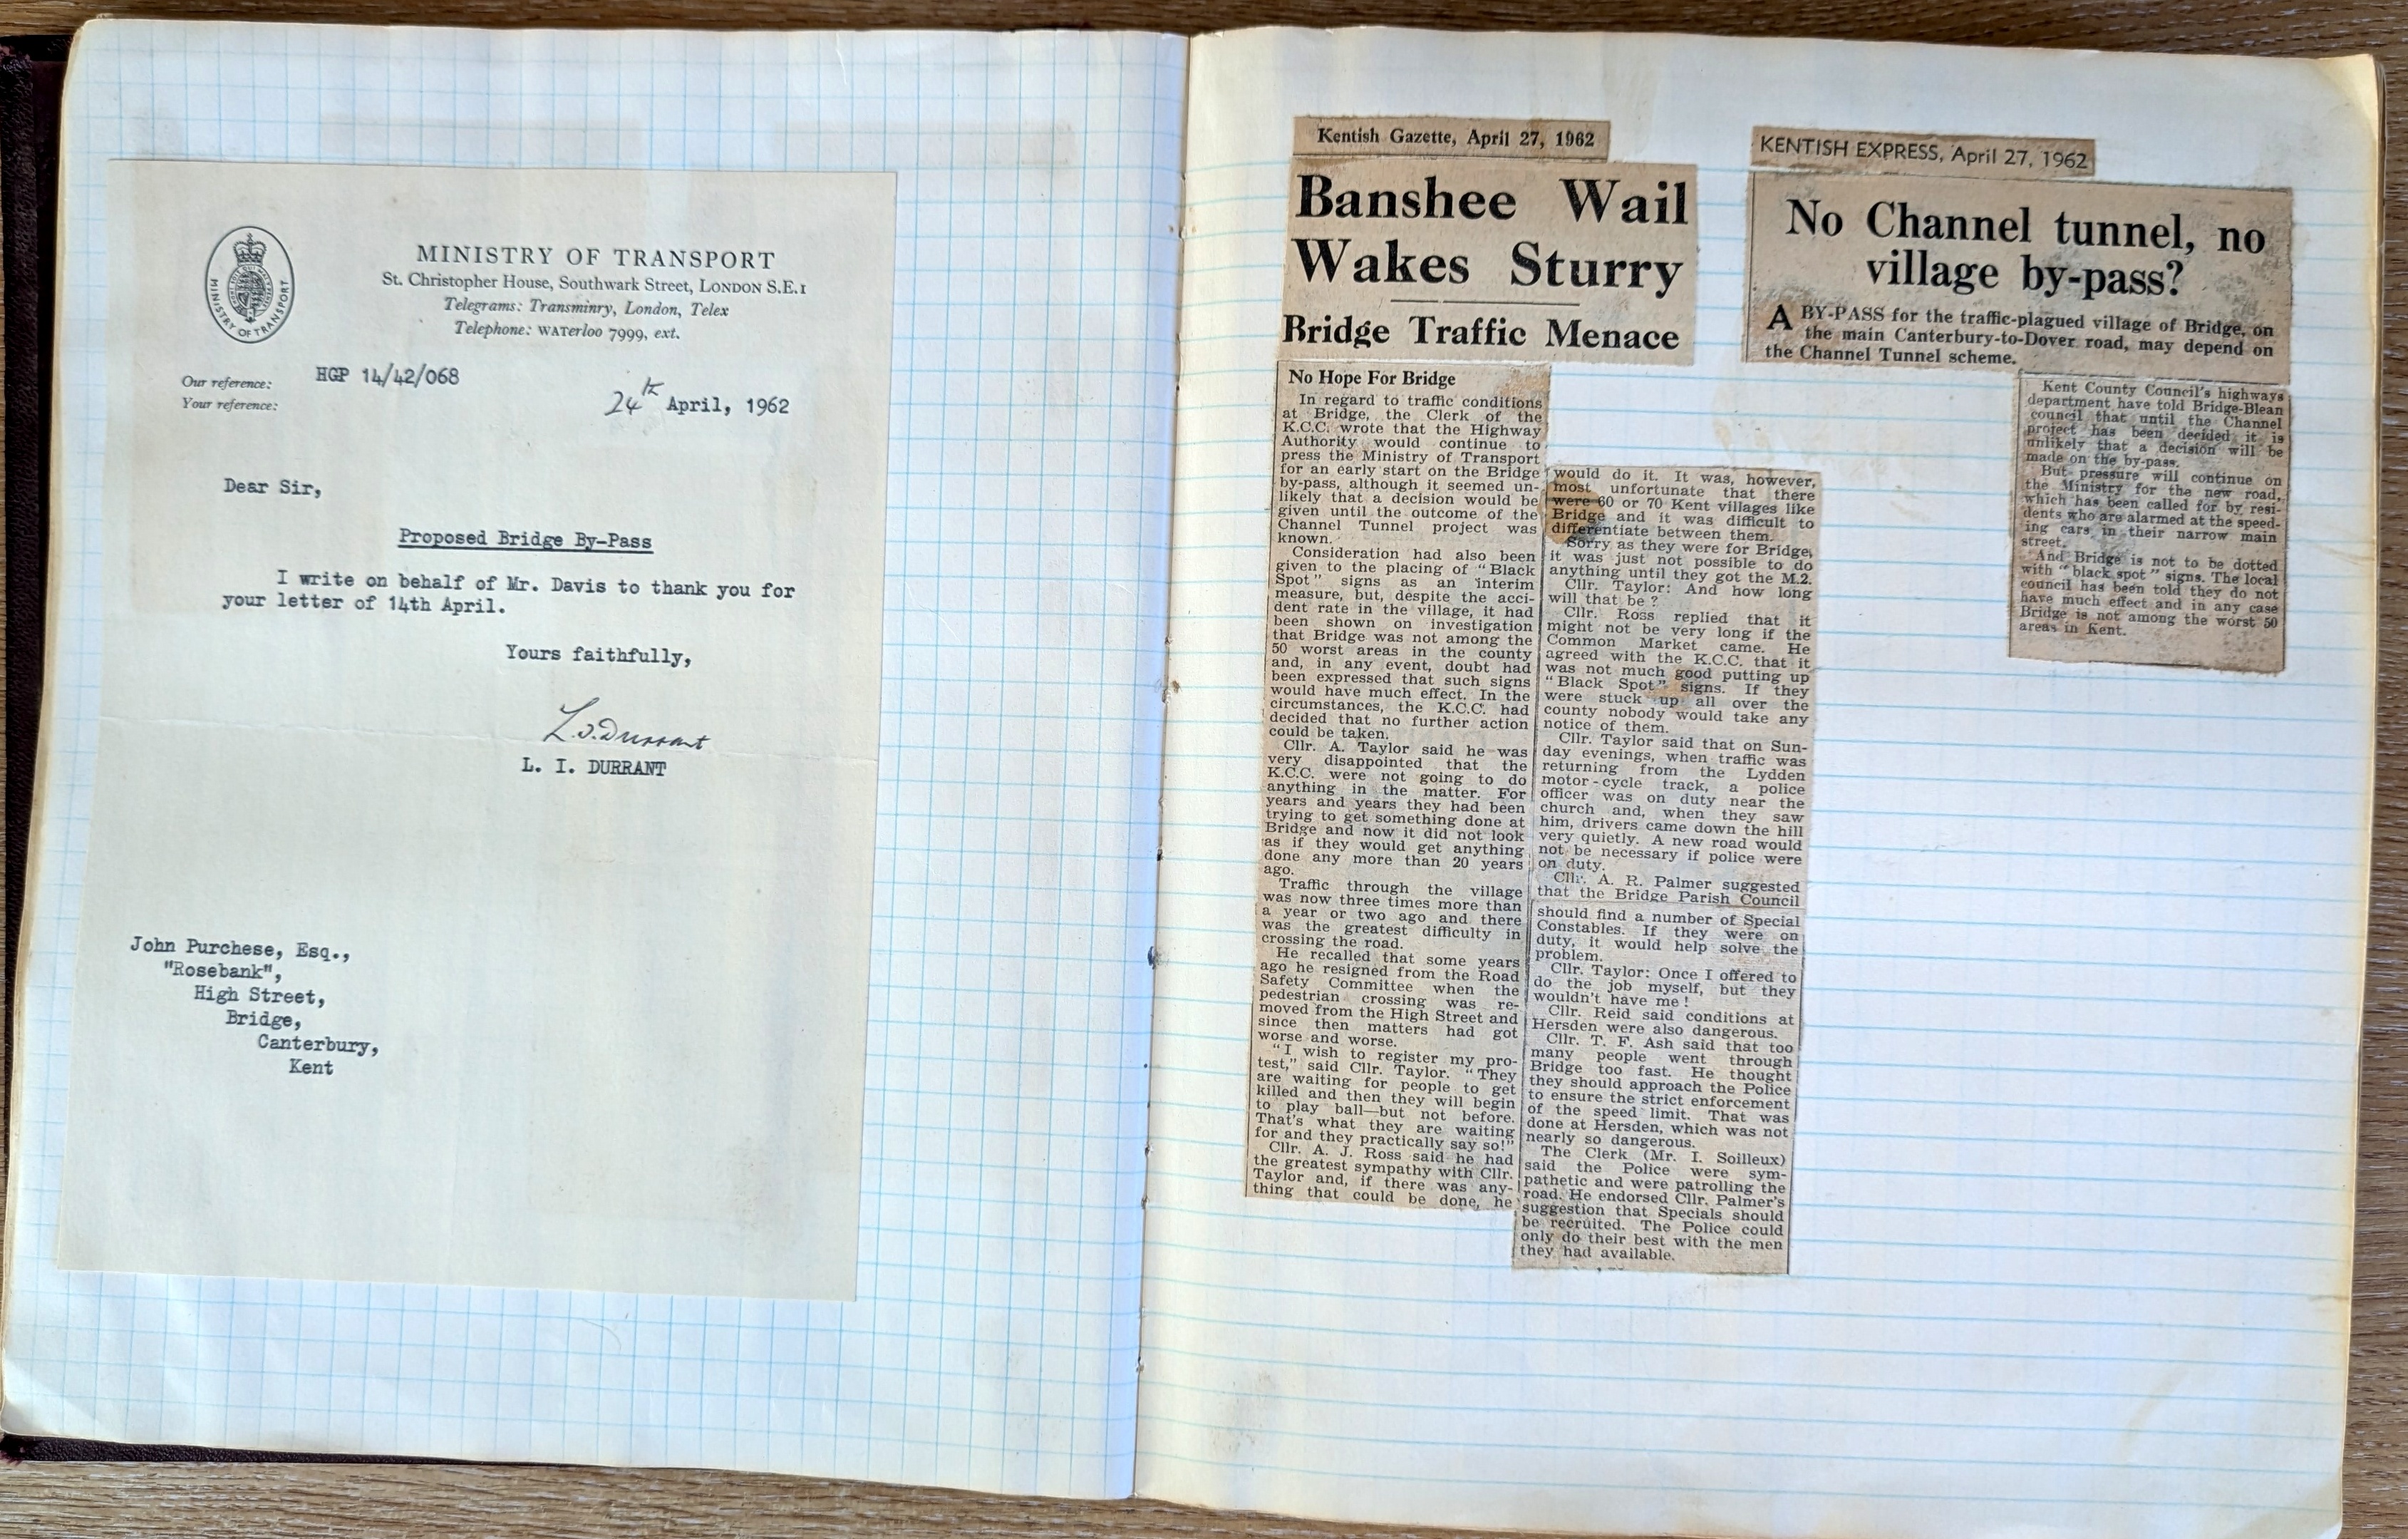 MINISTRY OF TRANSPORT
MINISTRY OF TRANSPORT
St. Christopher House, Southwark Street, LONDON S.E.1
Telegrams: Transminry, London, Telex
Telephone: WATerloo 7999, ext.
Our reference: HGP 14/42/068
Your reference:
24th April, 1962
Dear Sir,
Proposed Bridge By-Pass
I write on behalf of Mr. Davis to thank you for
your letter of 14th April.
Yours faithfully,
L. I. Durrant
L. I. DURRANT
John Purchese, Esq.,
"Rosebank",
High Street,
Bridge,
Canterbury,
Kent
Kentish Gazette, April 27, 1962
Banshee Wail
Wakes Sturry
Bridge Traffic Menace
No Hope For Bridge
In regard to traffic conditions
at Bridge, the Clerk of the
K.C.C. wrote that the Highway
Authority would continue to
press the Ministry of Transport
for an early start on the Bridge
by-pass, although it seemed un-
likely that a decision would be
given until the outcome of the
Channel Tunnel project was
known.
Consideration had also been
given to the placing of "Black
Spot" signs as an interim
measure, but, despite the acci-
dent rate in the village, it had
been shown on investigation
that Bridge was not among the
50 worst areas in the county
and, in any event, doubt had
been expressed that such signs
would have much effect. In the
circumstances, the K.C.C. had
decided that no further action
could be taken.
Cllr. A. Taylor said he was
very disappointed that the
K.C.C. were not going to do
anything in the matter. For
years and years they had been
trying to get something done at
Bridge and now it did not look
as if they would get anything
done any more than 20 years
ago.
Traffic through the village
was now three times more than
a year or two ago and there
was the greatest difficulty in
crossing the road.
He recalled that some years
ago he resigned from the Road
Safety Committee when the
pedestrian crossing was re-
moved from the High Street and
since then matters had got
worse and worse.
"I wish to register my pro-
test," said Cllr. Taylor. "They
are waiting for people to get
killed and then they will begin
to play ball—but not before.
That's what they are waiting
for and they practically say so!"
Cllr. A. J. Ross said he had
the greatest sympathy with Cllr.
Taylor and, if there was any-
thing that could be done, he
would do it. It was, however,
most unfortunate that there
were 60 or 70 Kent villages like
Bridge and it was difficult to
differentiate between them.
Sorry as they were for Bridge,
it was just not possible to do
anything until they got the M.2.
Cllr. Taylor: And how long
will that be?
Cllr. Ross replied that it
might not be very long if the
Common Market came. He
agreed with the K.C.C. that it
was not much good putting up
"Black Spot" signs. If they
were stuck up all over the
county nobody would take any
notice of them.
Cllr. Taylor said that on Sun-
day evenings, when traffic was
returning from the Lydden
motor-cycle track, a police
officer was on duty near the
church and, when they saw
him, drivers came down the hill
very quietly. A new road would
not be necessary if police were
on duty.
Cllr. A. R. Palmer suggested
that the Bridge Parish Council
should find a number of Special
Constables. If they were on
duty, it would help solve the
problem.
Cllr. Taylor: Once I offered to
do the job myself, but they
wouldn't have me!
Cllr. Reid said conditions at
Hersden were also dangerous.
Cllr. T. F. Ash said that too
many people went through
Bridge too fast. He thought
they should approach the Police
to ensure the strict enforcement
of the speed limit. That was
done at Hersden, which was not
nearly so dangerous.
The Clerk (Mr. I. Soilleux)
said the Police were sym-
pathetic and were patrolling the
road. He endorsed Cllr. Palmer's
suggestion that Specials should
be recruited. The Police could
only do their best with the men
they had available.
KENTISH EXPRESS, April 27, 1962
No Channel tunnel, no
village by-pass?
A BY-PASS for the traffic-plagued village of Bridge, on
the main Canterbury-to-Dover road, may depend on
the Channel Tunnel scheme.
Kent County Council's highways
department have told Bridge-Blean
council that until the Channel
project has been decided it is
unlikely that a decision will be
made on the by-pass.
But pressure will continue on
the Ministry for the new road,
which has been called for by resi-
dents who are alarmed at the speed-
ing cars in their narrow main
street.
And Bridge is not to be dotted
with "black spot" signs. The local
council has been told they do not
have much effect and in any case
Bridge is not among the worst 50
areas in Kent.